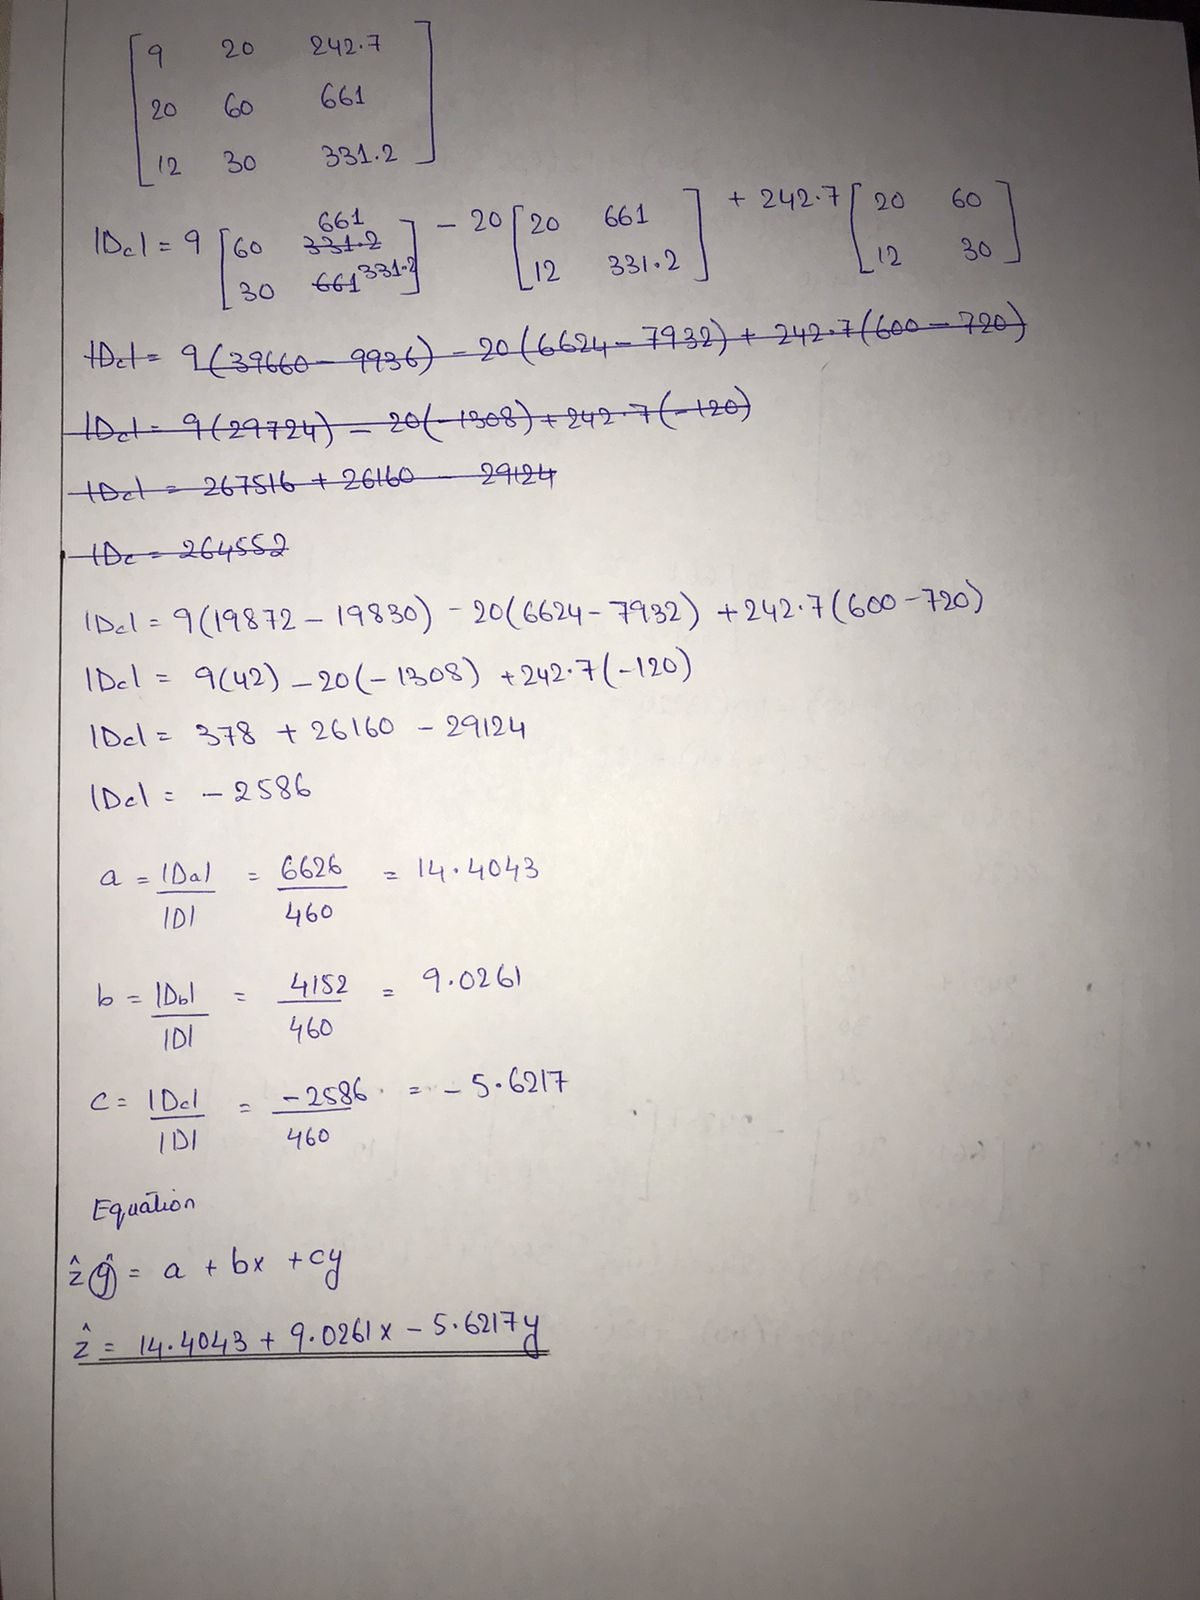 [ 9 20 242.7
20 60 661
12 30 331.2 ]
|Dc| = 9 [ 60 ~~331.2~~ 661
30 ~~661~~ 331.2 ] - 20 [ 20 661
12 331.2 ] + 242.7 [ 20 60
12 30 ]
~~|Dc| = 9(39660 - 9936) - 20(6624 - 7932) + 242.7(600 - 720)~~
~~|Dc| = 9(29724) - 20(-1308) + 242.7(-120)~~
~~|Dc| = 267516 + 26160 - 29124~~
~~|Dc = 264552~~
|Dc| = 9(19872 - 19830) - 20(6624 - 7932) + 242.7(600 - 720)
|Dc| = 9(42) - 20(-1308) + 242.7(-120)
|Dc| = 378 + 26160 - 29124
|Dc| = - 2586
a = |Da| / |D| = 6626 / 460 = 14.4043
b = |Db| / |D| = 4152 / 460 = 9.0261
c = |Dc| / |D| = -2586 / 460 = - 5.6217
Equation
ẑ ŷ = a + bx + cy
ẑ = 14.4043 + 9.0261x - 5.6217y